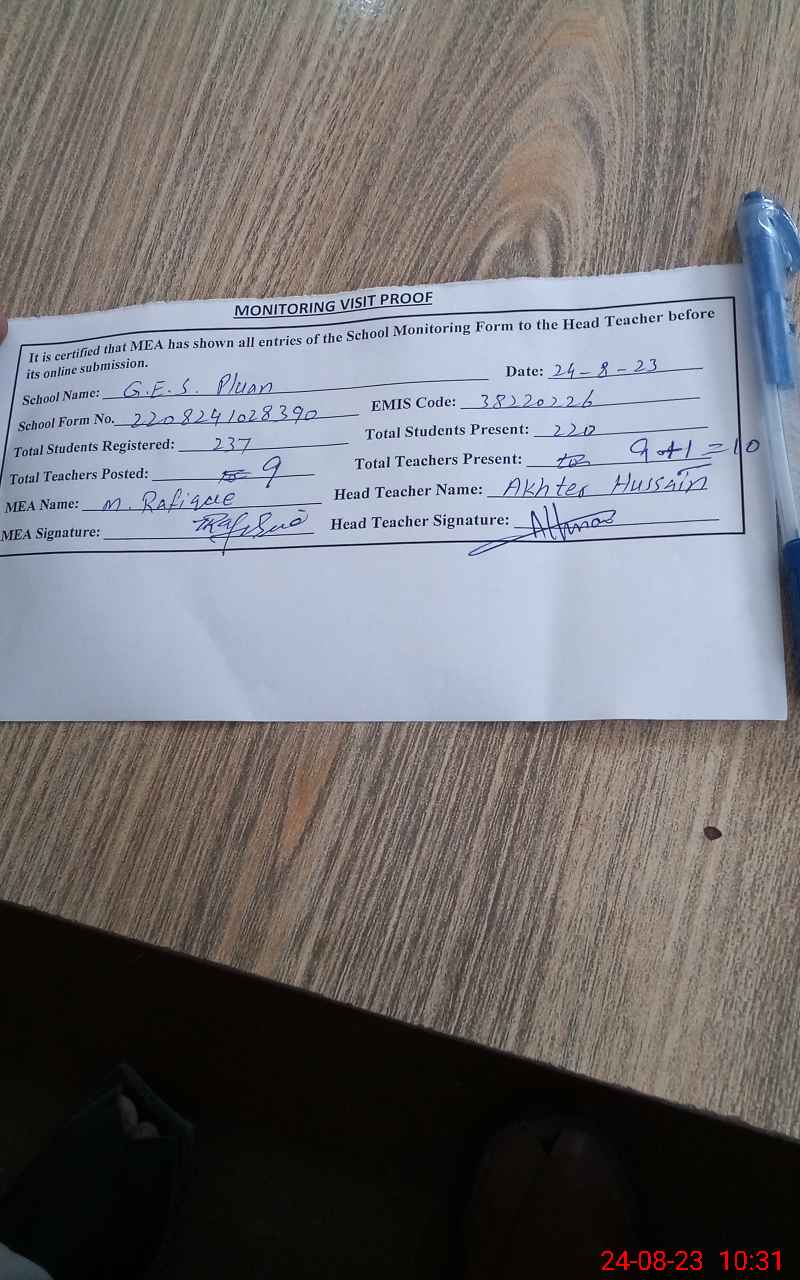 MONITORING VISIT PROOF
It is certified that MEA has shown all entries of the School Monitoring Form to the Head Teacher before
its online submission.
School Name: G.E.S. Pluan Date: 24-8-23
School Form No. 2208241028390 EMIS Code: 38220226
Total Students Registered: 237 Total Students Present: 220
Total Teachers Posted: 9 Total Teachers Present: 9+1=10
MEA Name: M. Rafique Head Teacher Name: Akhter Hussain
MEA Signature: Head Teacher Signature:
24-08-23 10:31